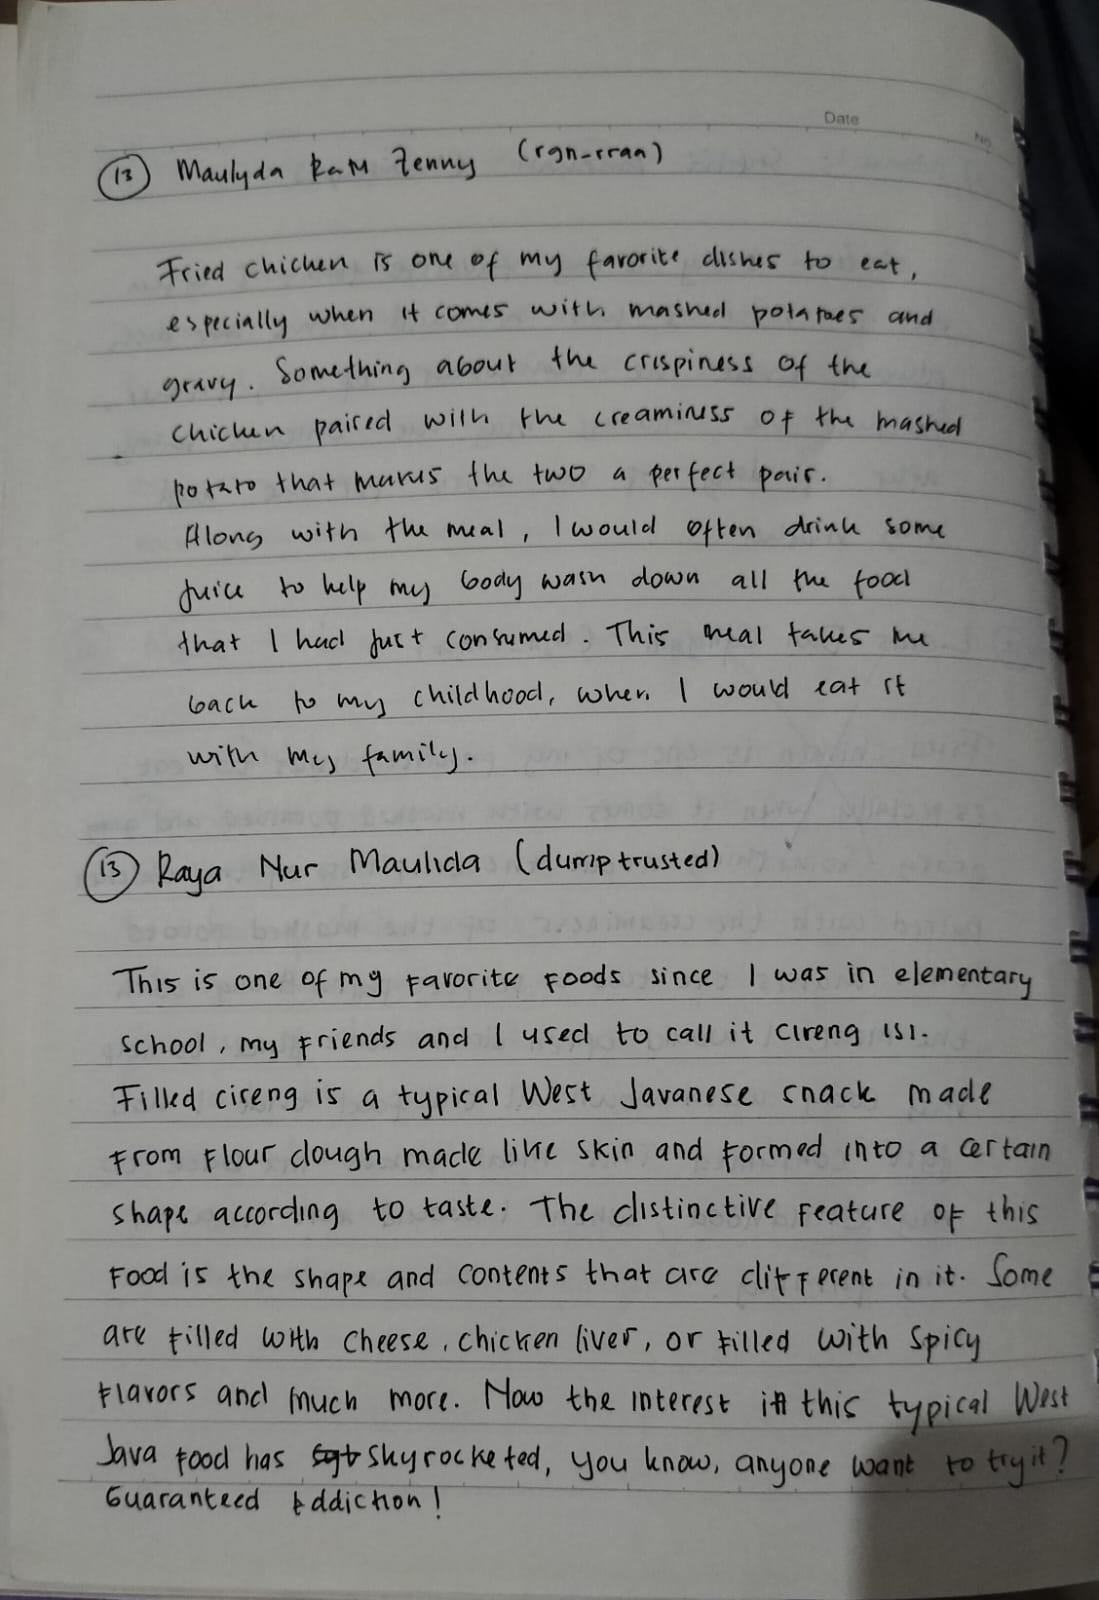 Date
No
(12) Maulyda RaM Zenny (rgn-rraa)
Fried chicken is one of my favorite dishes to eat,
especially when it comes with mashed potatoes and
gravy. Something about the crispiness of the
chicken paired with the creaminess of the mashed
potato that makes the two a perfect pair.
Along with the meal, I would often drink some
juice to help my body wash down all the food
that I had just consumed. This meal takes me
back to my childhood, when I would eat it
with my family.
(13) Raya Nur Maulida (dumptrusted)
This is one of my favorite foods since I was in elementary
school, my friends and I used to call it cireng isi.
Filled cireng is a typical West Javanese snack made
from flour dough made like skin and formed into a certain
shape according to taste. The distinctive feature of this
food is the shape and contents that are different in it. Some
are filled with cheese, chicken liver, or filled with spicy
flavors and much more. Now the interest in this typical West
Java food has skyrocketed, you know, anyone want to try it?
Guaranteed Addiction!